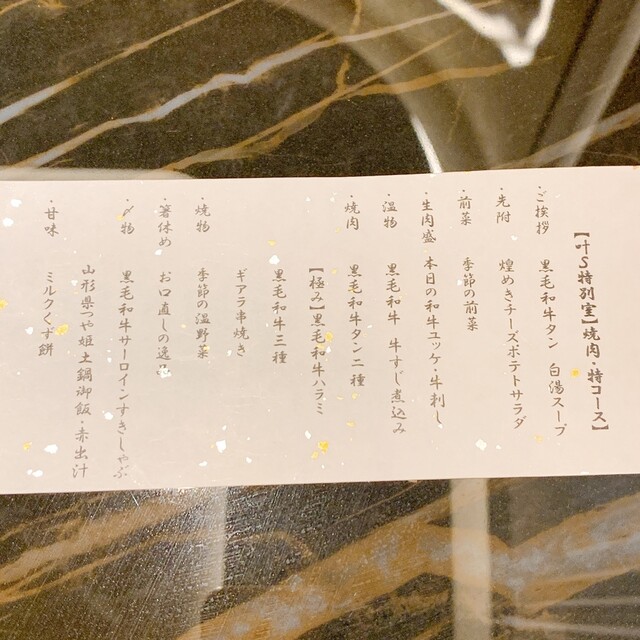 【十S特別室】焼肉・特コース】
・ご挨拶 黒毛和牛タン 白湯スープ
・先附 煌めきチーズポテトサラダ
・前菜 季節の前菜
・生肉盛 本日の和牛ユッケ・牛刺し
・温物 黒毛和牛 牛すじ煮込み
・焼肉 黒毛和牛タン二種
【極み】黒毛和牛ハラミ
黒毛和牛三種
ギアラ串焼き
・焼物 季節の温野菜
・箸休め お口直しの逸品
・〆物 黒毛和牛サーロインすきしゃぶ
山形県つや姫土鍋御飯・赤出汁
・甘味 ミルクくず餅